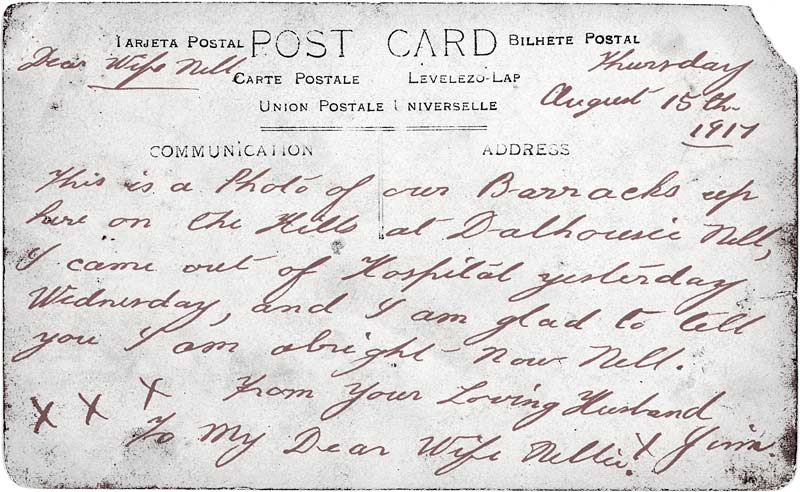 TARJETA POSTAL POST CARD BILHETE POSTAL
CARTE POSTALE LEVELEZŐ-LAP
UNION POSTALE UNIVERSELLE
COMMUNICATION ADDRESS
Dear Wife Nell
Thursday
August 15th
1917
This is a Photo of our Barracks up
here on the Hills at Dalhousie Nell,
I came out of Hospital yesterday
Wednesday, and I am glad to tell
you I am alright now Nell.
X X X From Your Loving Husband
To My Dear Wife Nellie. X Jim.